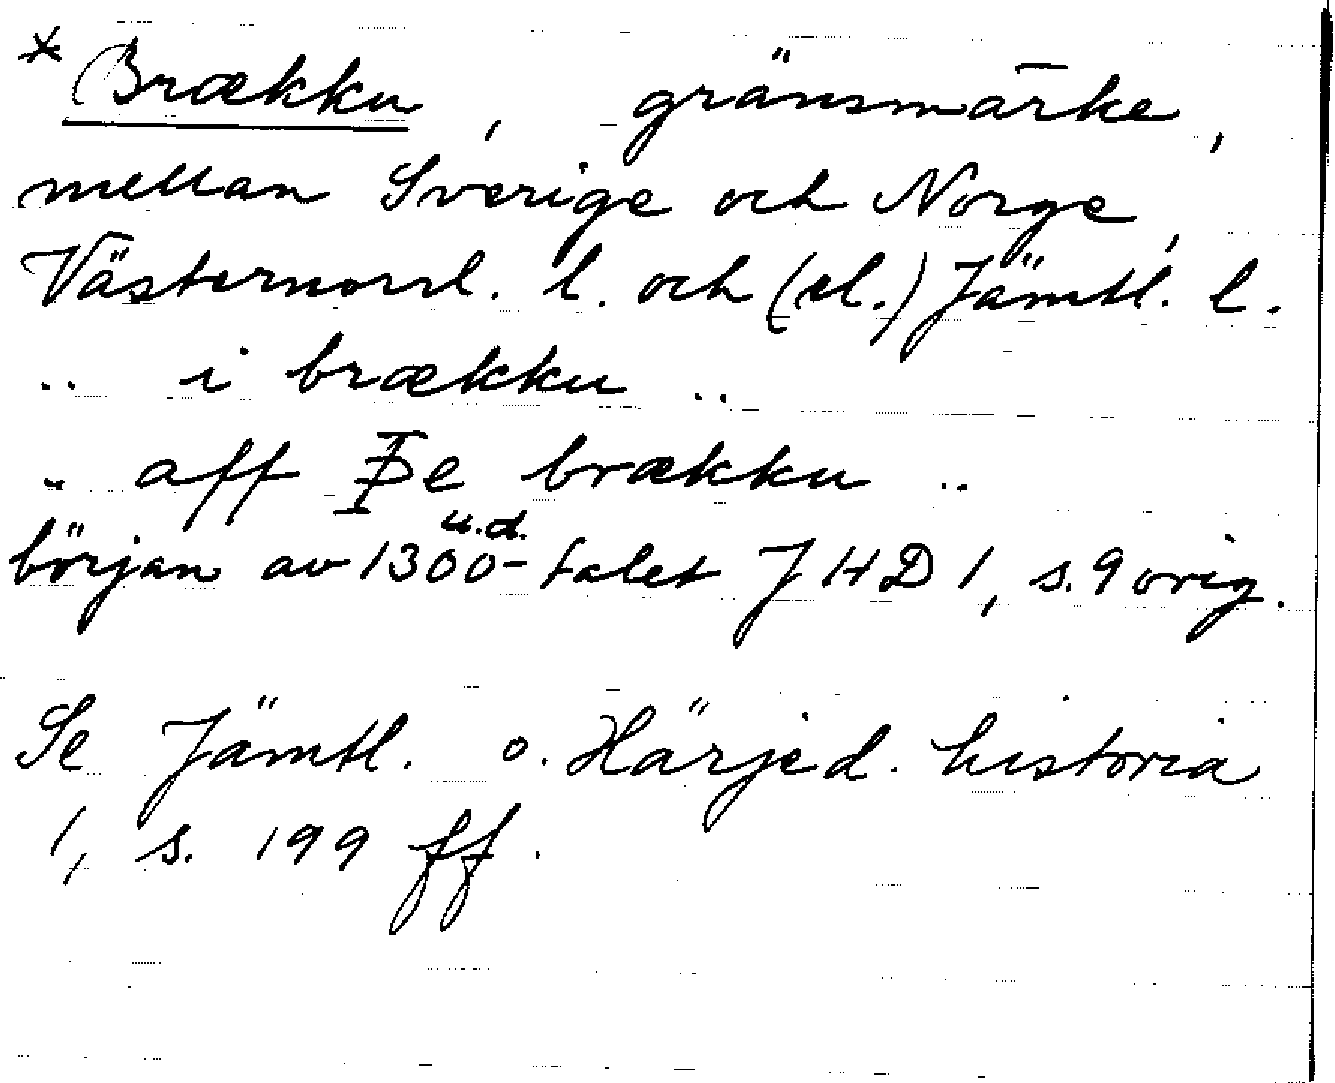 * Brækku, gränsmärke,
mellan Sverige och Norge,
Västernorrl. l. och (el.) Jämtl. l.
.. i brækku ..
.. aff Þe brækku ..
början av 1300-talet u.d. JHD 1, s. 9 orig.
Se Jämtl. o. Härjed. historia
1, s. 199 ff.